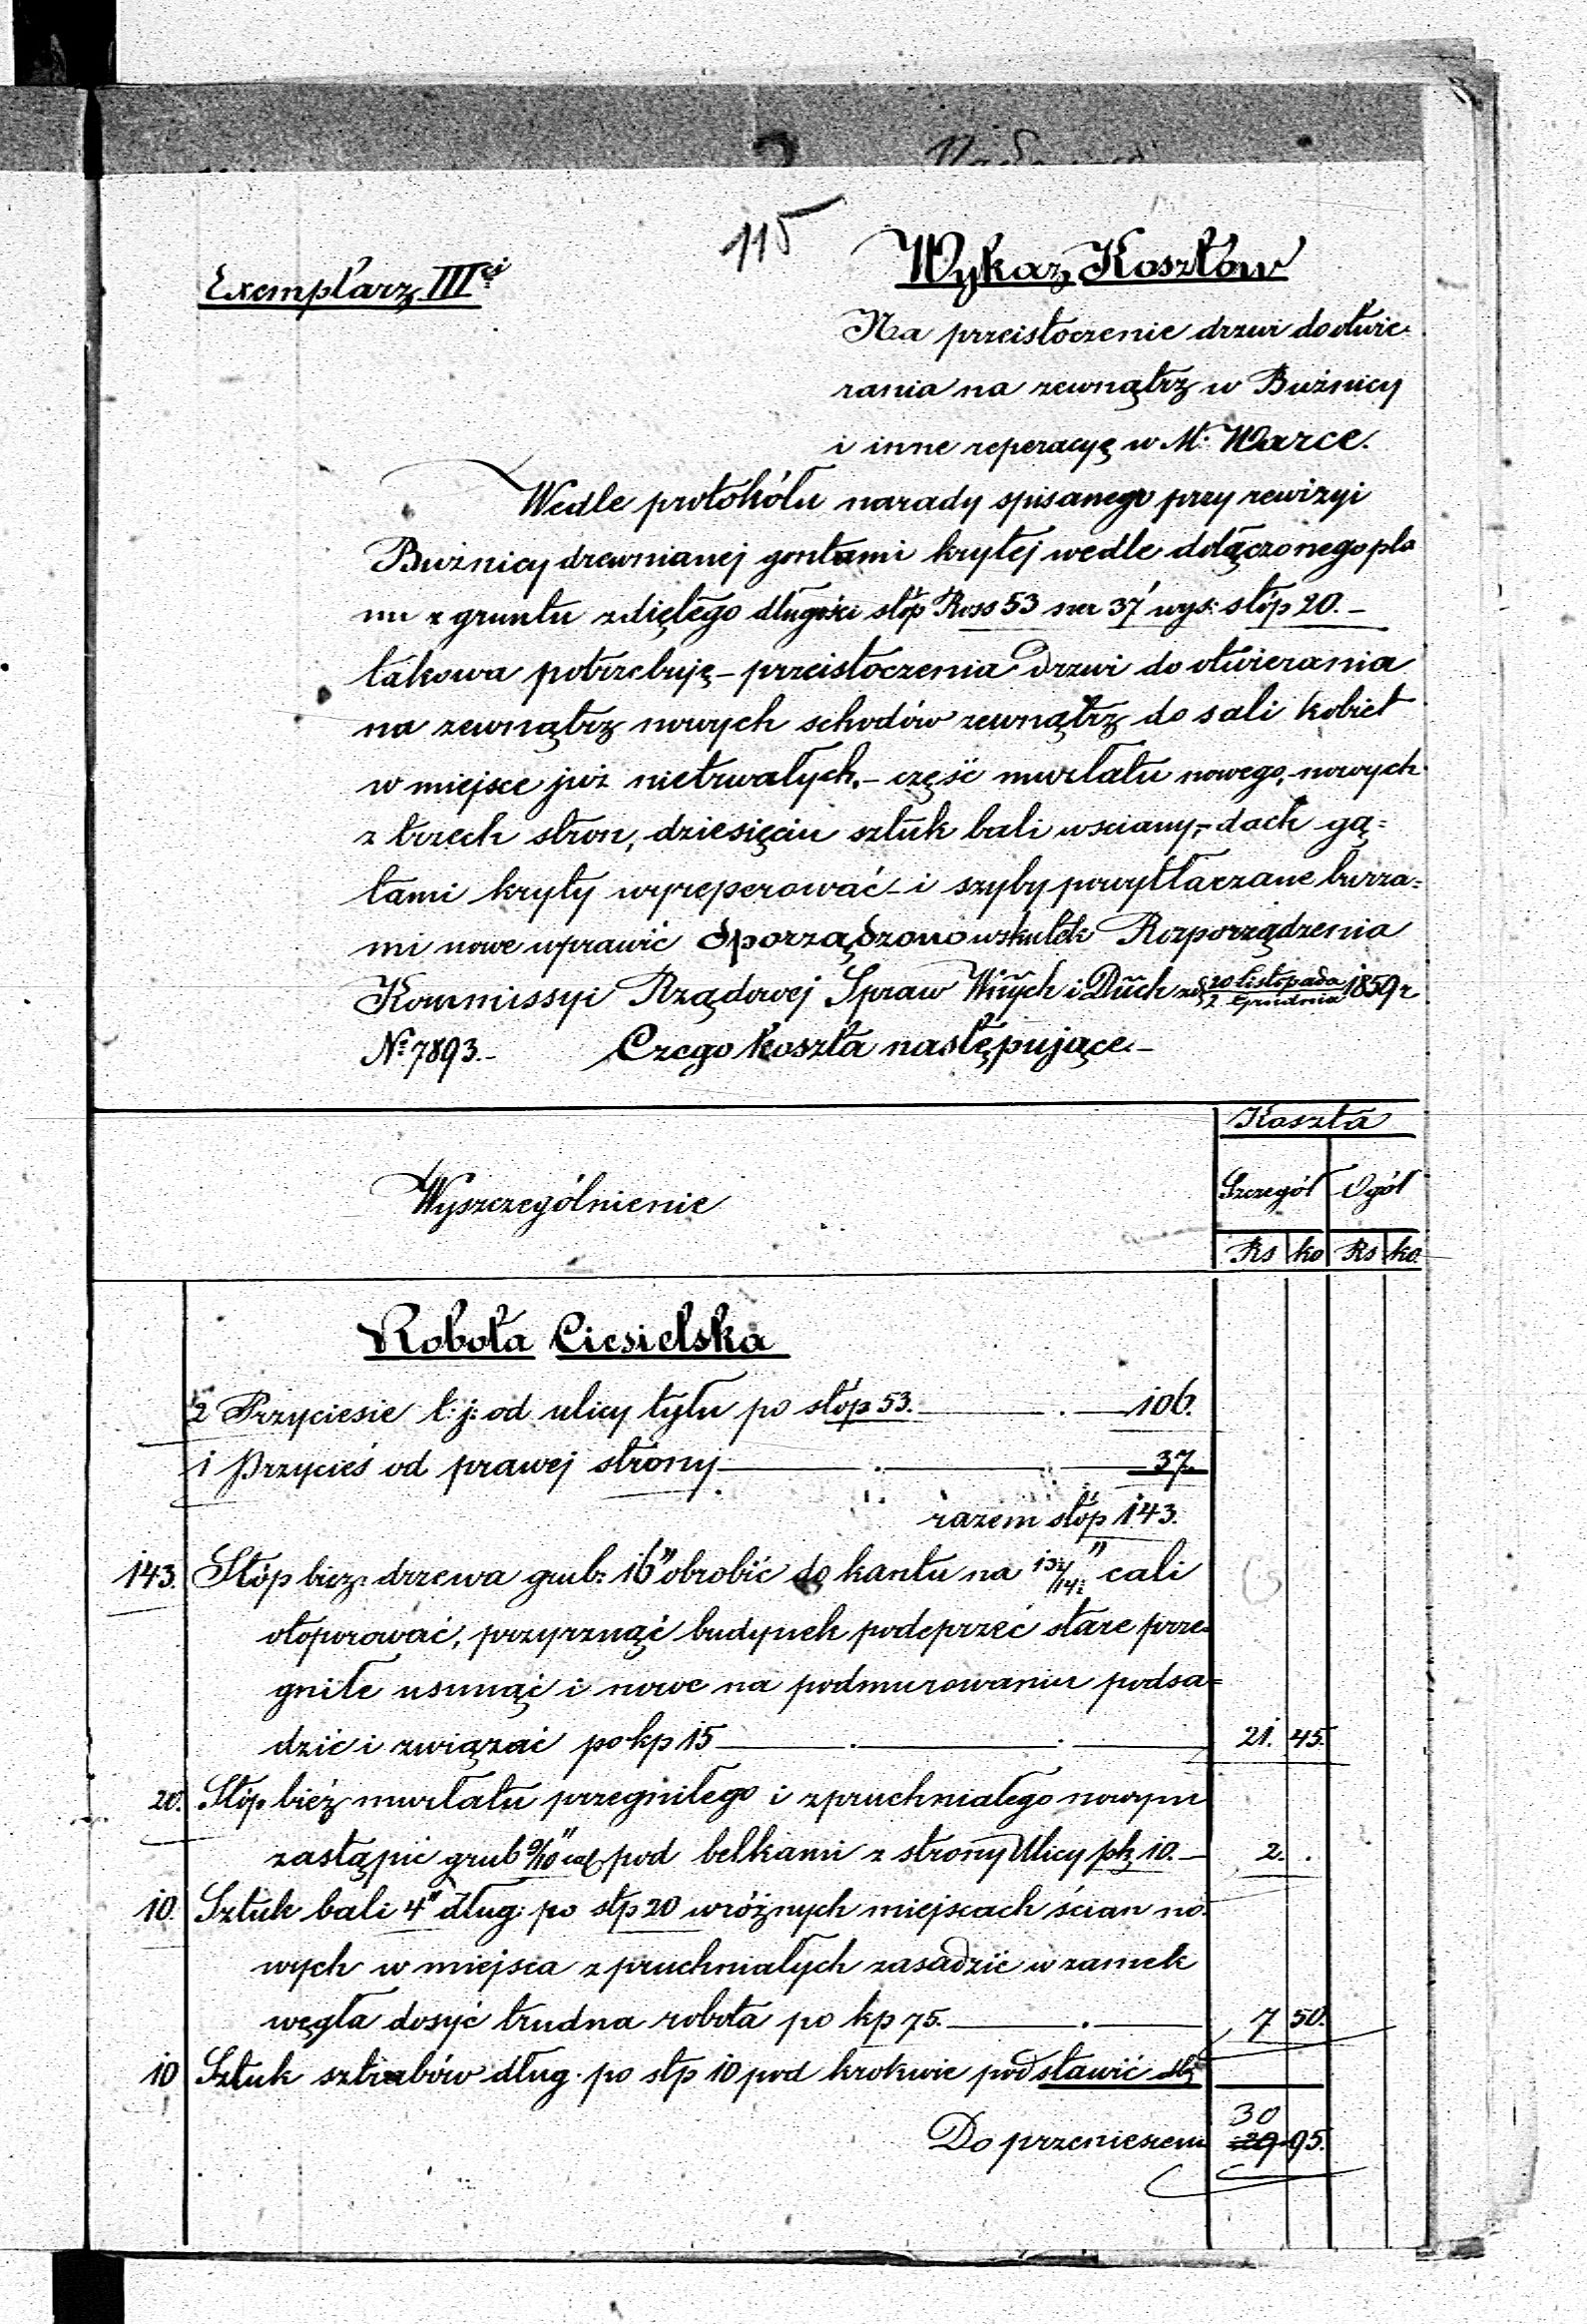 115
Exemplarz IIIci
Wykaz Kosztów
Na przeistoczenie drzwi do otwie-
rania na zewnątrz w Bużnicy
i inne reperacyę w M: Warce.
Wedle protokółu narady spisanego przy rewizyi
Bużnicy drewnianej gontami krytej wedle dołączonego pla
nu z gruntu zdiętego długości stóp Ross 53 szer 37' wys: stóp 20.–
takowa potrzebuję – przeistoczenia Drzwi do otwierania
na zewnątrz nowych schodów zewnątrz do sali kobiet
w miejsce już nietrwałych. – część murłatu nowego, nowych
z trzech stron, dziesięciu sztuk bali w sciany, – dach gą=
tami kryty wyreperować – i szyby powytłaczane burza=
mi nowe wprawić Sporządzono wskutek Rozporządzenia
Kommissyi Rządowej Spraw Wnych i Duch zd 20 listopada / 2 Grudnia 1859 r
No 7893.– Czego koszta następujące.–
Koszta
Wyszczególnienie Szczegół Ogół
Rs ko Rs ko
Robota Ciesielska
2 Przyciesie t: j: od ulicy tyłu po stóp 53. 106.
1 Przycieś od prawej strony 37.
razem stóp 143.
143. Stóp bież: drzewa grub: 16" obrobić do kantu na cali
otoporować, przyrznąć budynek podeprzeć stare prze-
gniłe usunąć i nowe na podmurowaniu podsa=
dzić i związać po kp 15 21. 45.
20. Stóp bież murłatu przegniłego i zpruchniałego nowym
zastąpić grub 9/10" cal pod belkami z strony Ulicy pk 10.– 2. .
10. Sztuk bali 4" dług: po stp 20 w różnych miejscach ścian no-
wych w miejsca zpruchniałych zasadzić w zamek
węgła dosyć trudna robota po kp 75. 7 50.
10 Sztuk sztrabów dług. po stp 10 pod krokwie podstawić
Do przeniesieni 30 29 95.